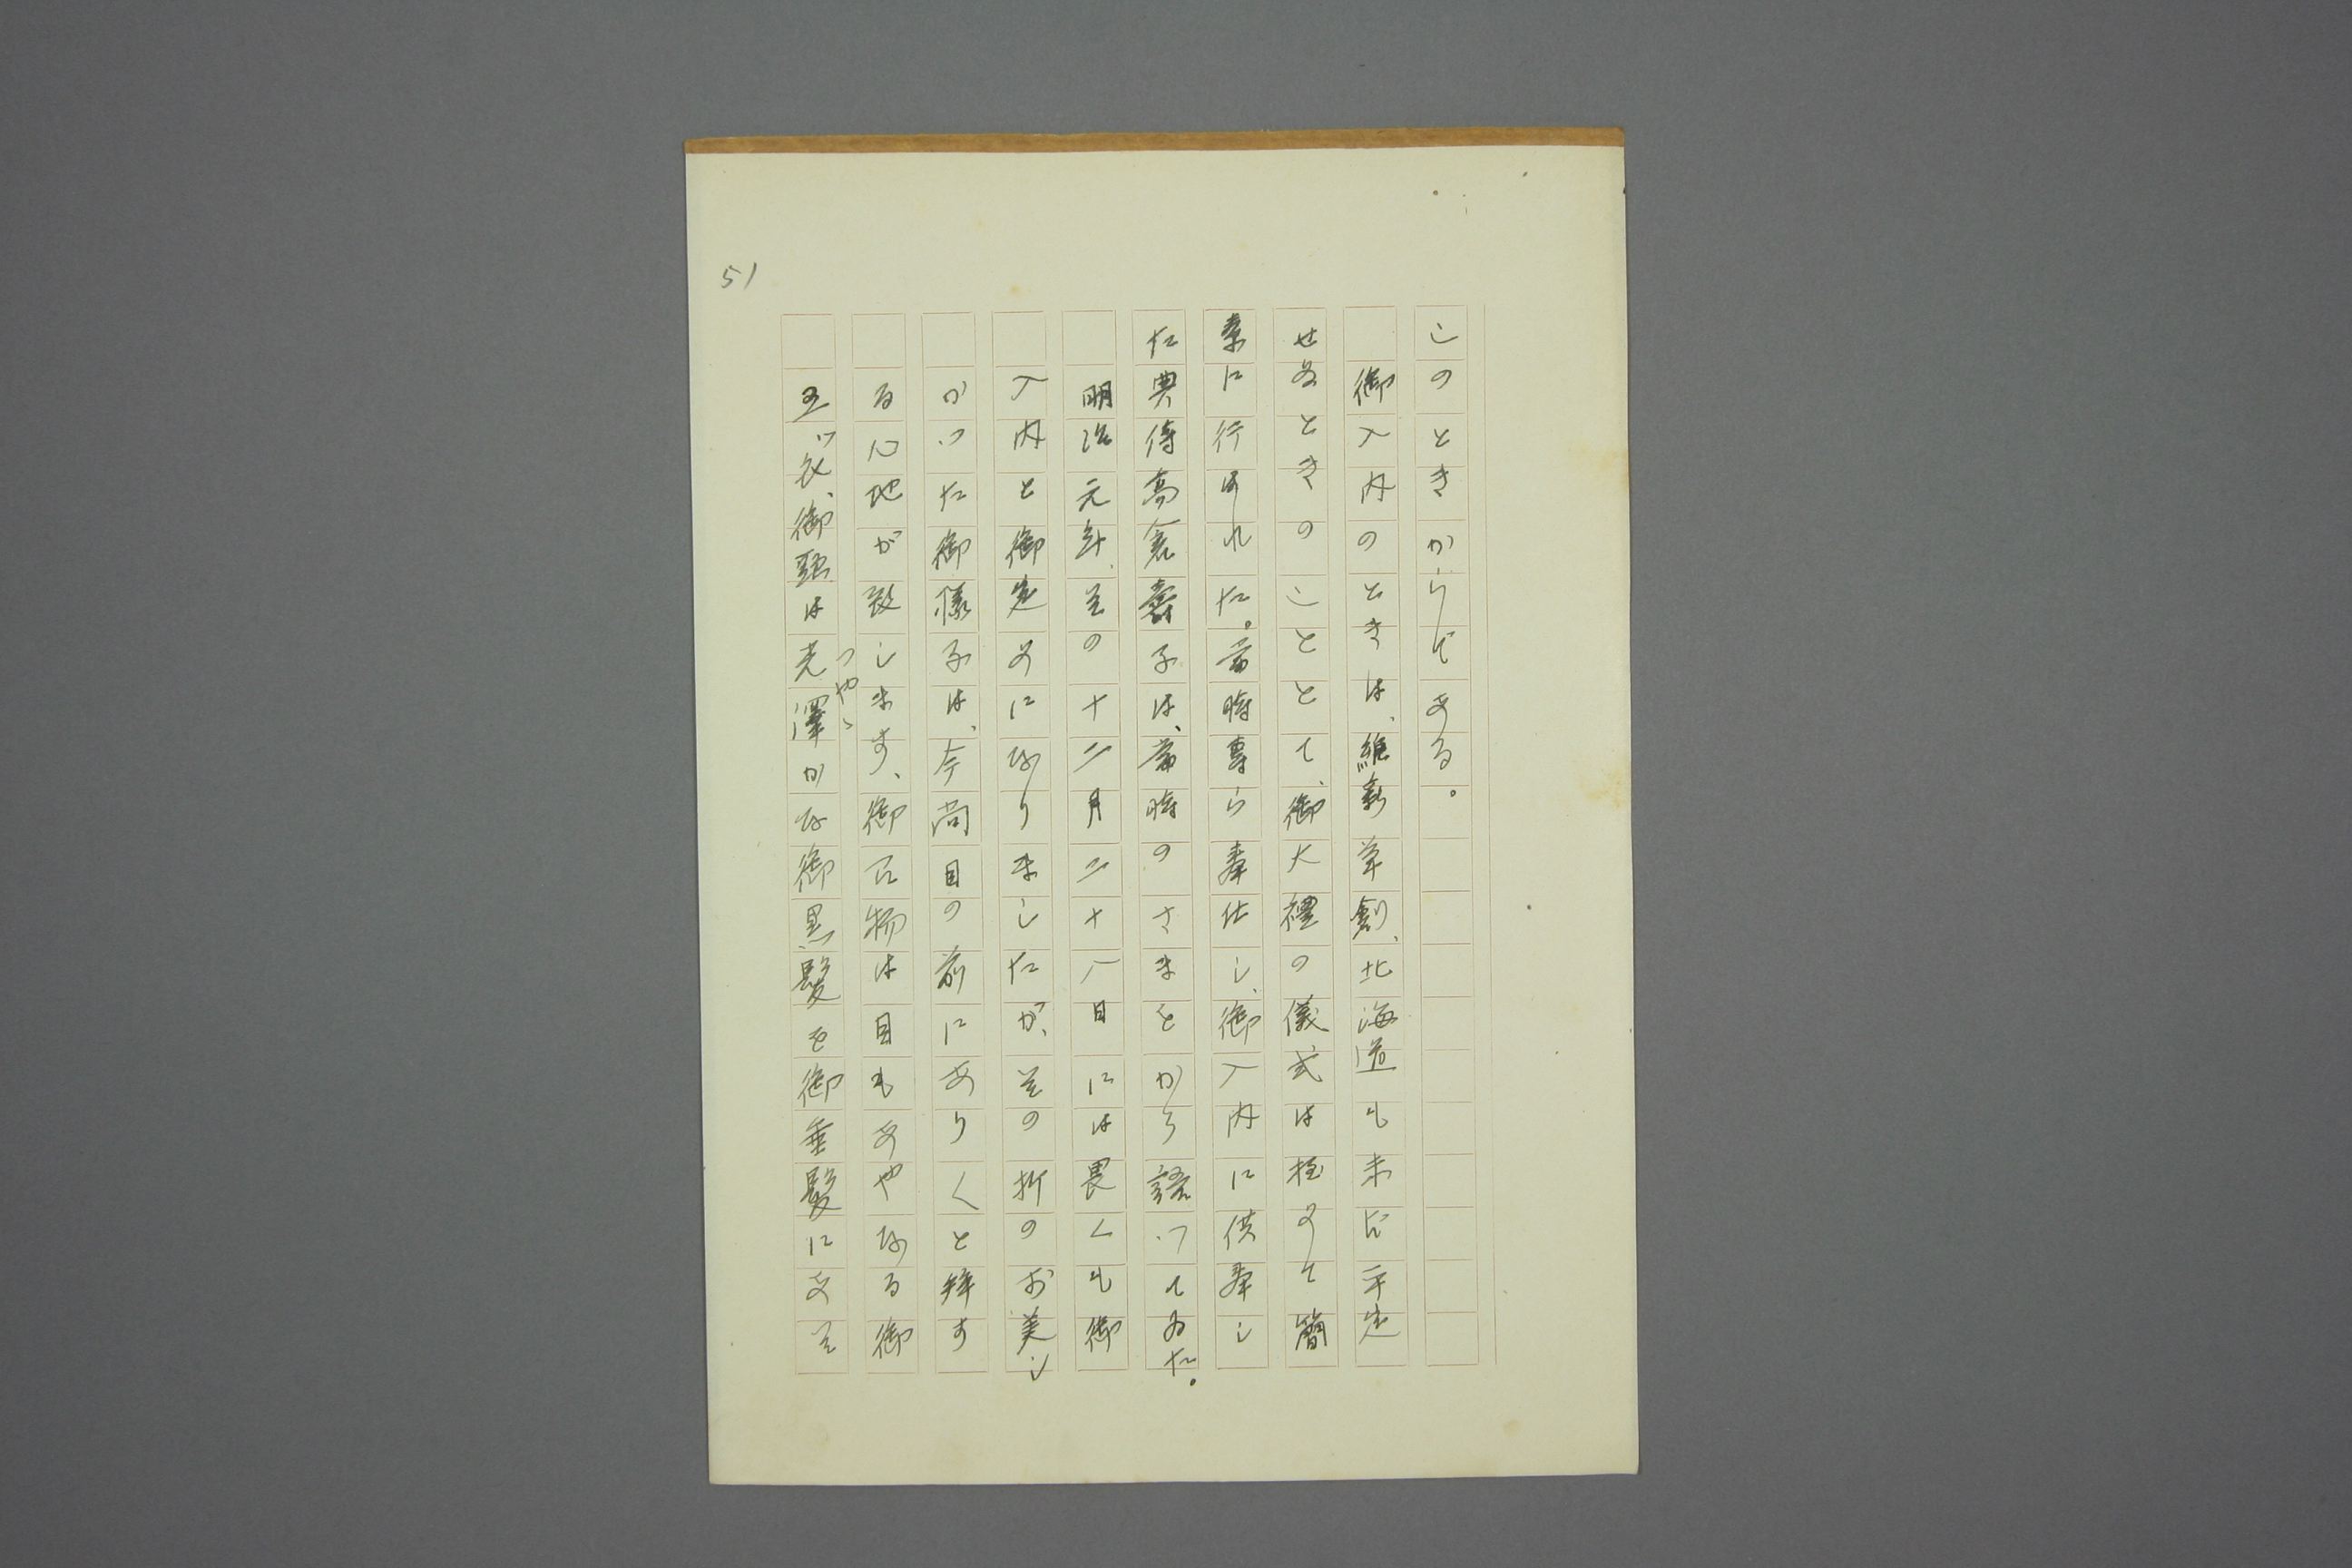 51
このときからである。
御入内のときは、維新草創、北海道も未だ平定
せぬときのこととて、御大禮の儀式は極めて簡
素に行はれた。當時專ら奉仕し、御入内に供奉し
た典侍高倉壽子は、當時のさまをかう語つてゐた。
明治元年、その十二月二十八日には畏くも御
入内と御定めになりましたが、その折のお美し
かつた御樣子は、今尚目の前にありくと拜す
る心地が致します、御召物は目もあやなる御
五ツ衣、御頭は光澤かな御黒髮を御垂髮にあそ
つやゝ